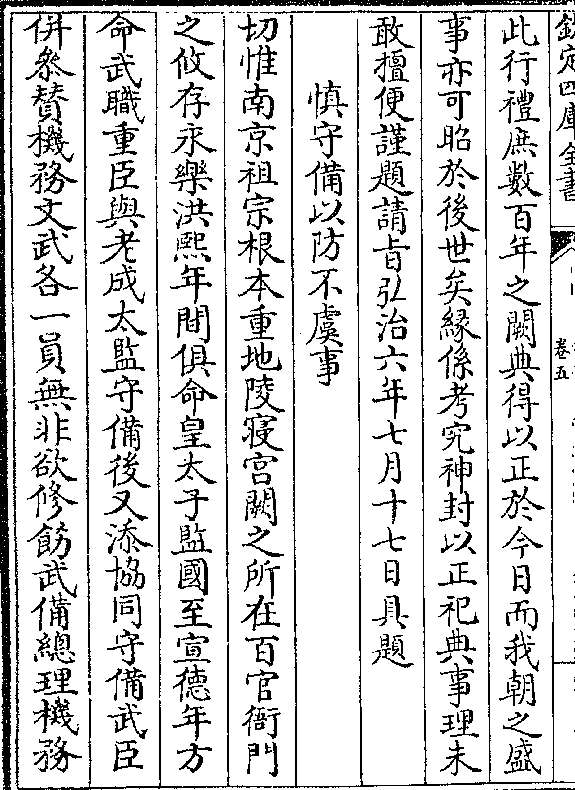 欽定四庫全書
卷五
此行禮庶數百年之闕典得以正於今日而我朝之盛
事亦可昭於後世矣緣係考究神封以正祀典事理未
敢擅便謹題請旨弘治六年七月十七日具題
慎守備以防不虞事
切惟南京祖宗根本重地陵寝宫闕之所在百官衙門
之攸存永樂洪熙年間俱命皇太子監國至宣德年方
命武職重臣與老成太監守備後又添協同守備武臣
併叅贊機務文武各一員無非欲修飭武備總理機務